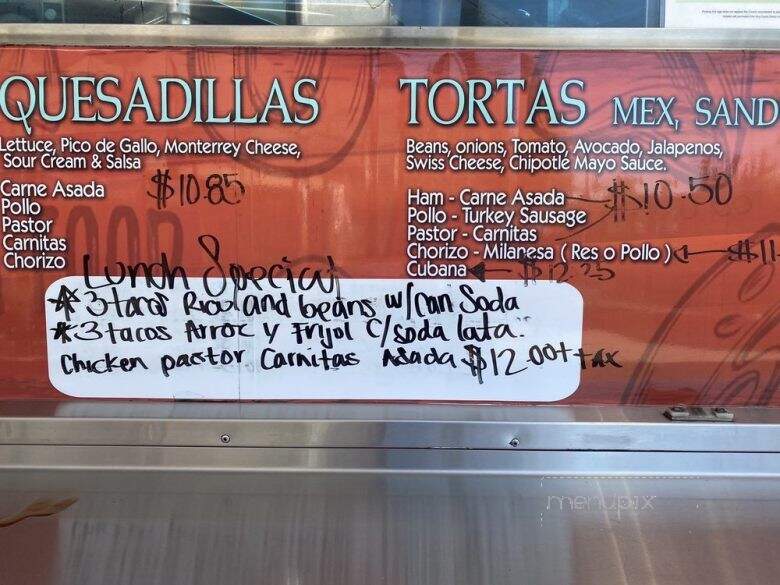 QUESADILLAS
Lettuce, Pico de Gallo, Monterrey Cheese,
Sour Cream & Salsa
Carne Asada $10.85
Pollo
Pastor
Carnitas
Chorizo
TORTAS MEX, SAND
Beans, onions, Tomato, Avocado, Jalapenos,
Swiss Cheese, Chipotle Mayo Sauce.
Ham - Carne Asada $10.50
Pollo - Turkey Sausage
Pastor - Carnitas
Chorizo - Milanesa ( Res o Pollo ) $11
Cubana $12.25
Lunch Special
* 3 tacos Rice and beans w/can Soda
* 3 tacos Arroz y Frijol c/soda lata.
Chicken pastor Carnitas Asada $12.00 + tax
menupix